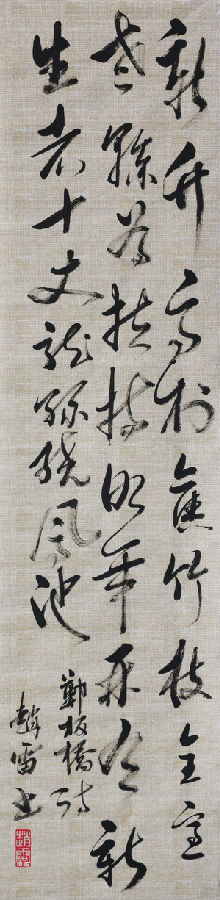 新竹高於舊竹枝全憑
老幹為扶持明年再有新
生者十丈龍孫繞鳳池
鄭板橋詩
趙雷書